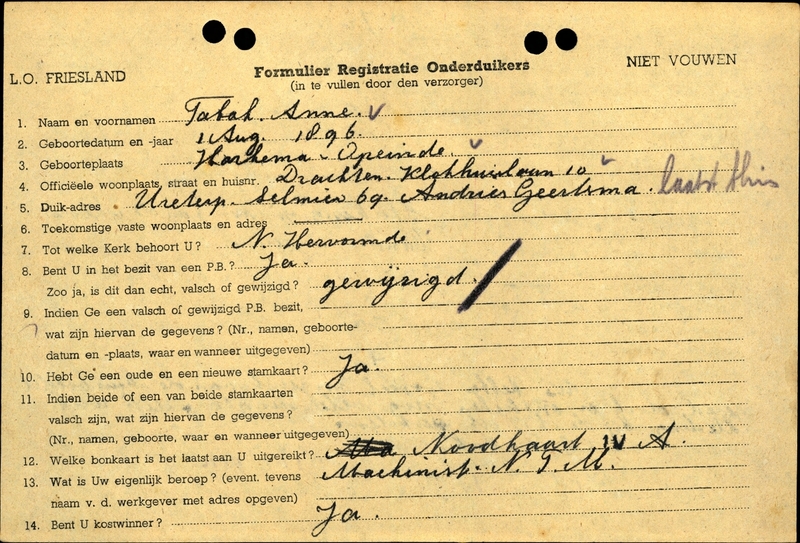 L.O. FRIESLAND
Formulier Registratie Onderduikers
NIET VOUWEN
(in te vullen door den verzorger)
1. Naam en voornamen Tabak. Anne.
2. Geboortedatum en -jaar 1 Aug. 1896.
3. Geboorteplaats Harkema - Opeinde
4. Officiëele woonplaats, straat en huisnr. Drachten. Klokhuislaan 10
5. Duik-adres Ureterp. Selmien 69. Andries Geertsma. laatst thuis
6. Toekomstige vaste woonplaats en adres
7. Tot welke Kerk behoort U? N. Hervormde
8. Bent U in het bezit van een P.B.? Ja.
Zoo ja, is dit dan echt, valsch of gewijzigd? gewijzigd.
9. Indien Ge een valsch of gewijzigd P.B. bezit,
wat zijn hiervan de gegevens? (Nr., namen, geboorte-
datum en -plaats, waar en wanneer uitgegeven)
10. Hebt Ge een oude en een nieuwe stamkaart? Ja.
11. Indien beide of een van beide stamkaarten
valsch zijn, wat zijn hiervan de gegevens?
(Nr., namen, geboorte, waar en wanneer uitgegeven)
12. Welke bonkaart is het laatst aan U uitgereikt? Noodkaart IV A.
13. Wat is Uw eigenlijk beroep? (event. tevens Machinist. N.T.M.
naam v. d. werkgever met adres opgeven)
14. Bent U kostwinner? Ja.